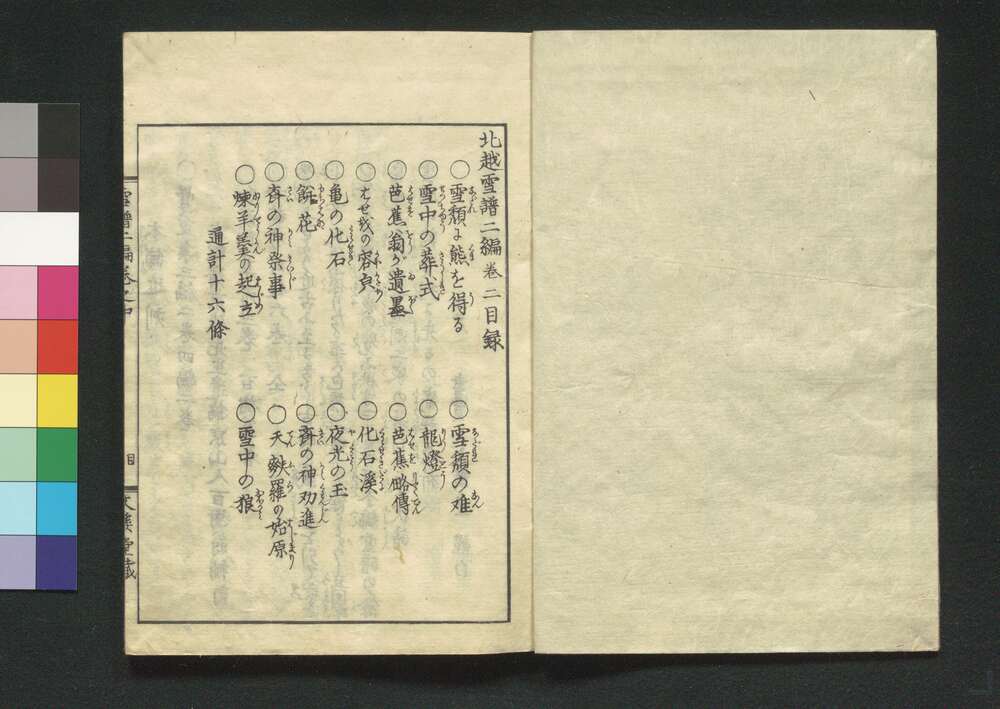 北越雪譜二編巻二目録
○雪頽に熊を得る
○雪頽の难
○雪中の葬式
○龍燈
○芭蕉翁が遺墨
○芭蕉略傳
○はせ
○化石溪
○亀の化石
○夜光の玉
○餅花
○斉の神勧進
○斉の神祭事
○天麩羅の始原
○煉羊羹の起立
○雪中の狼
通計十六條
雪譜二編巻之四
目
文溪堂蔵